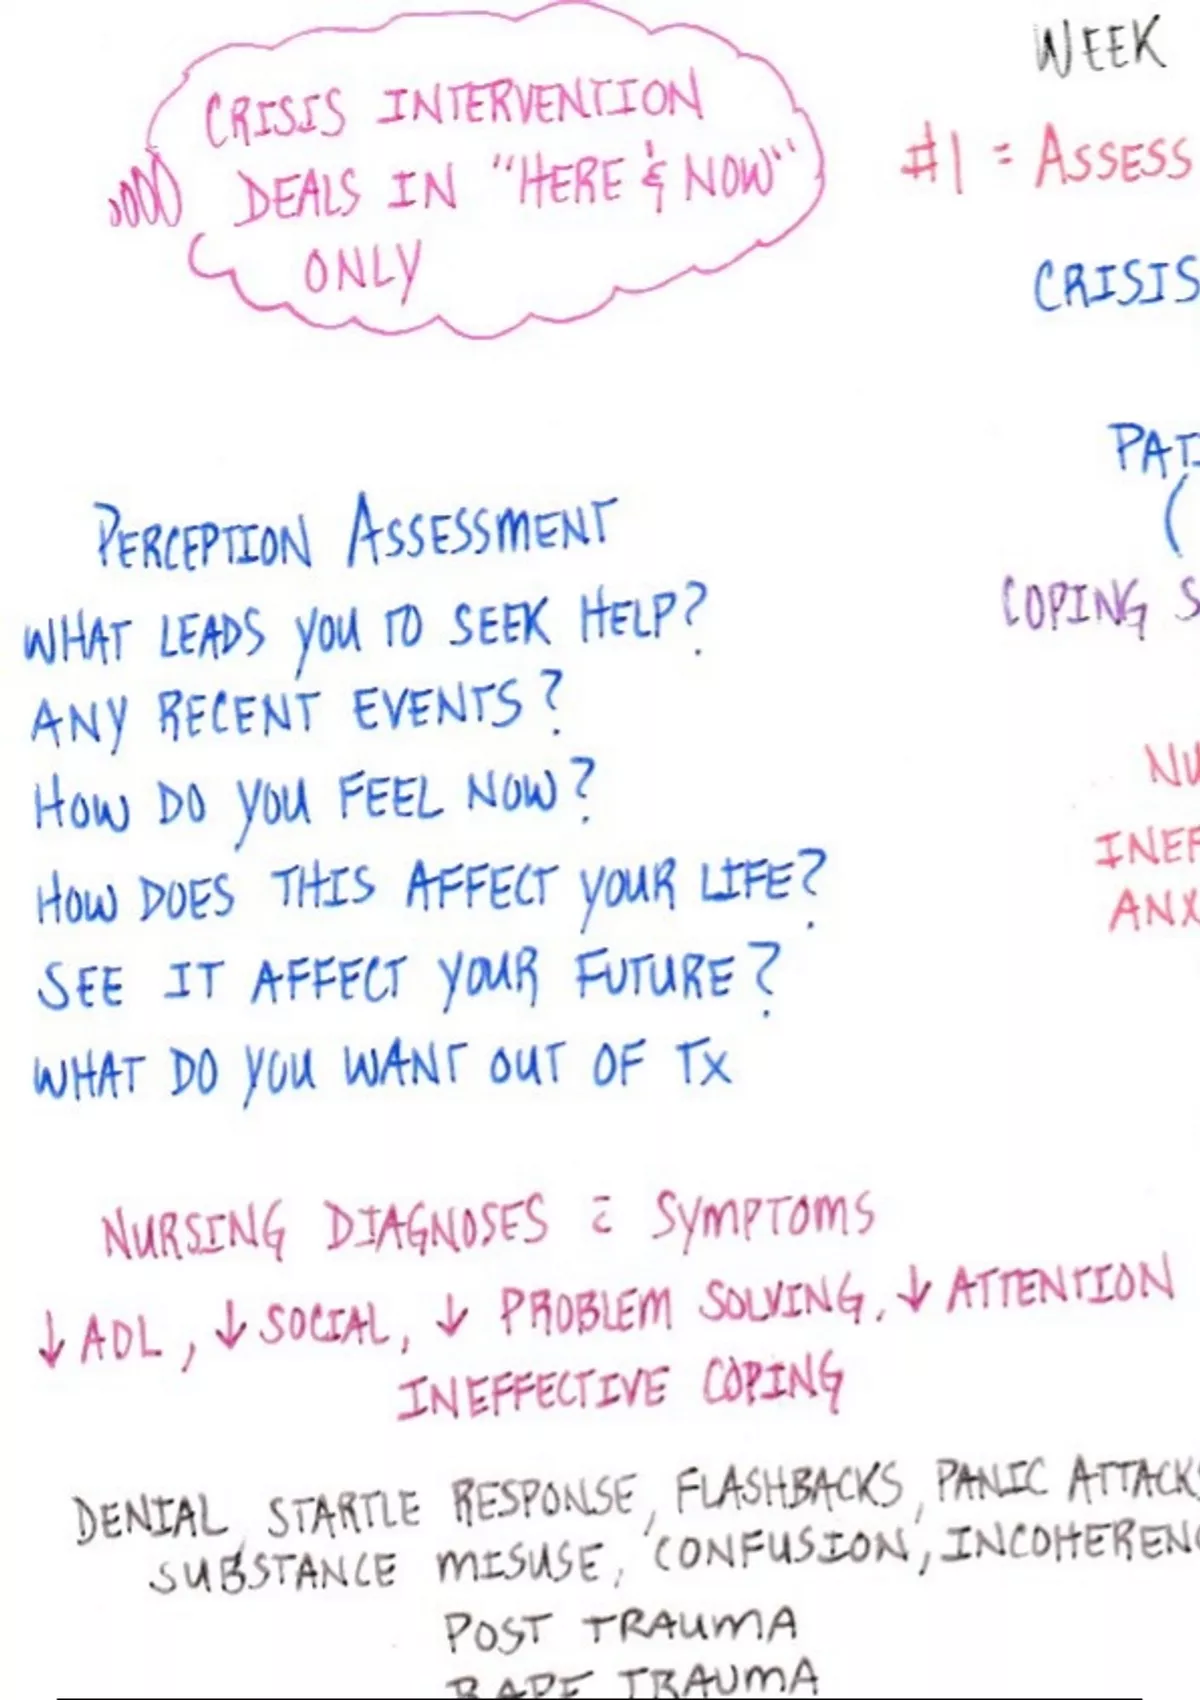 CRISIS INTERVENTION
DEALS IN "HERE & NOW"
ONLY
WEEK
#1 = ASSESS
CRISIS
PERCEPTION ASSESSMENT
WHAT LEADS YOU TO SEEK HELP?
ANY RECENT EVENTS?
HOW DO YOU FEEL NOW?
HOW DOES THIS AFFECT YOUR LIFE?
SEE IT AFFECT YOUR FUTURE?
WHAT DO YOU WANT OUT OF TX
COPING
NURSING DIAGNOSES c̄ SYMPTOMS
↓ ADL, ↓ SOCIAL, ↓ PROBLEM SOLVING, ↓ ATTENTION
INEFFECTIVE COPING
DENIAL, STARTLE RESPONSE, FLASHBACKS, PANIC ATTACKS
SUBSTANCE MISUSE, CONFUSION, INCOHEREN
POST TRAUMA
RAPE TRAUMA